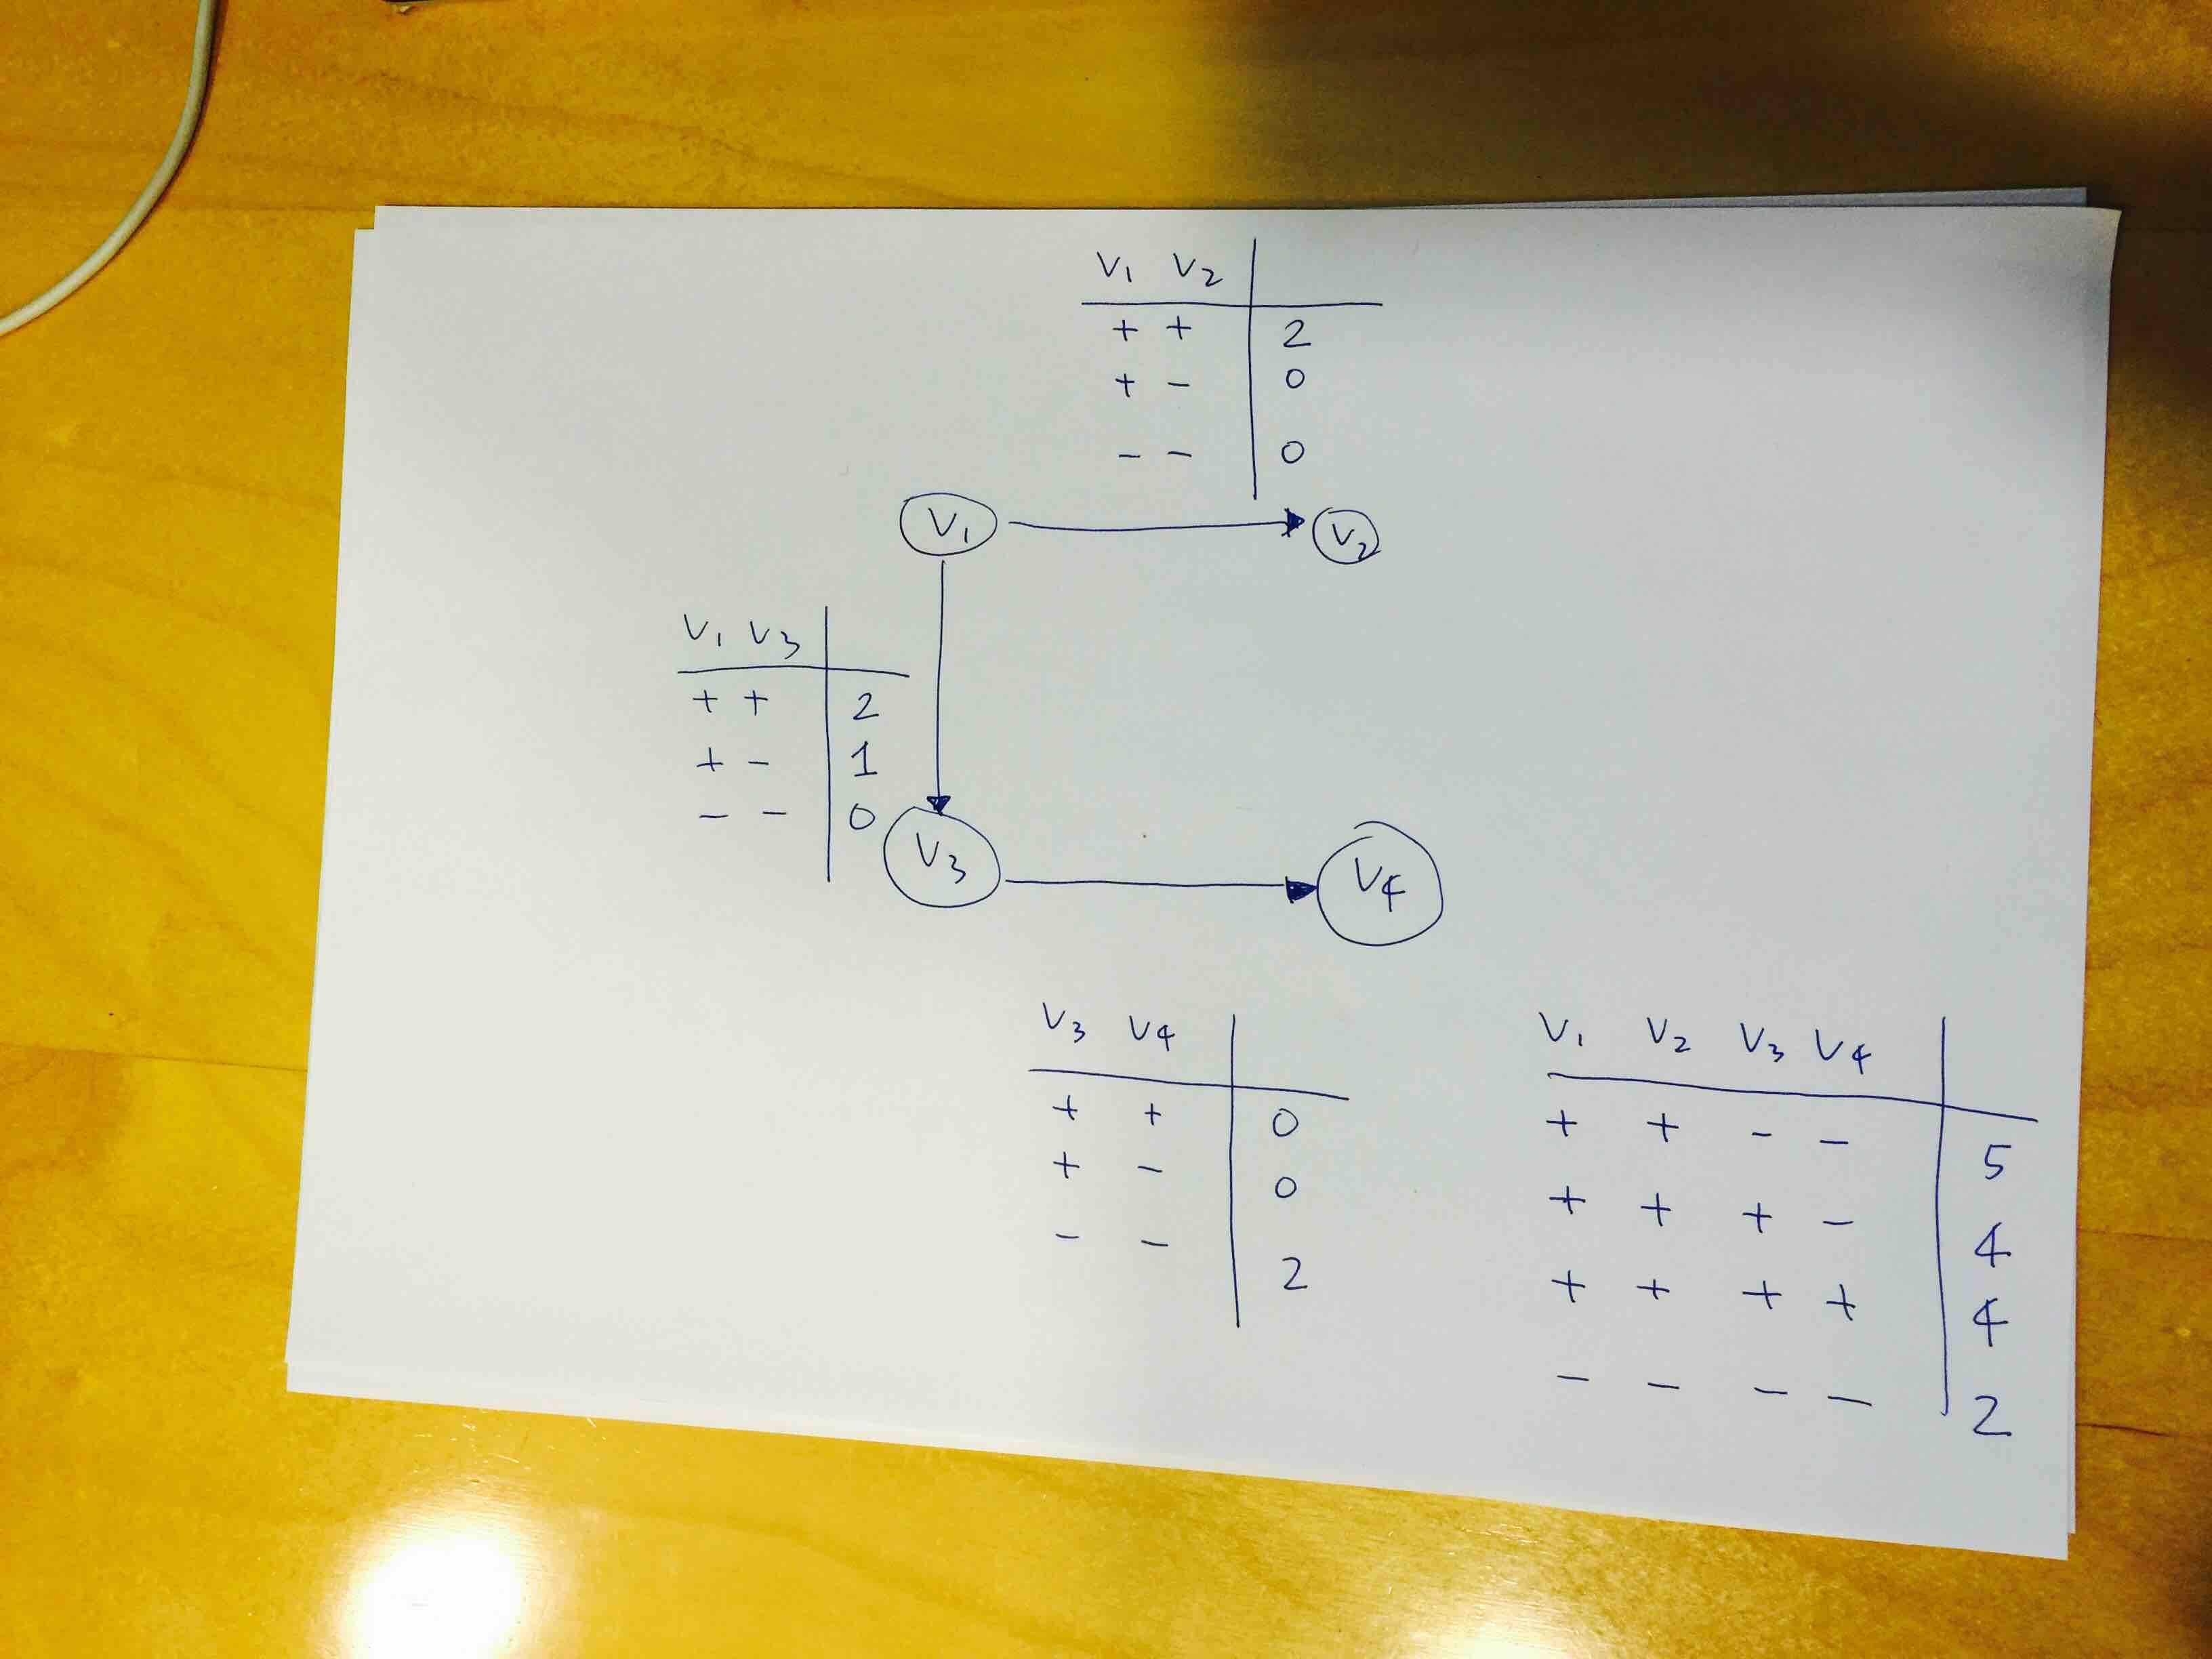 V₁ V₂
+ + 2
+ − 0
− − 0
V₁
V₂
V₁ V₃
+ + 2
+ − 1
− − 0
V₃
V₄
V₃ V₄
+ + 0
+ − 0
− − 2
V₁ V₂ V₃ V₄
+ + − − 5
+ + + − 4
+ + + + 4
− − − − 2